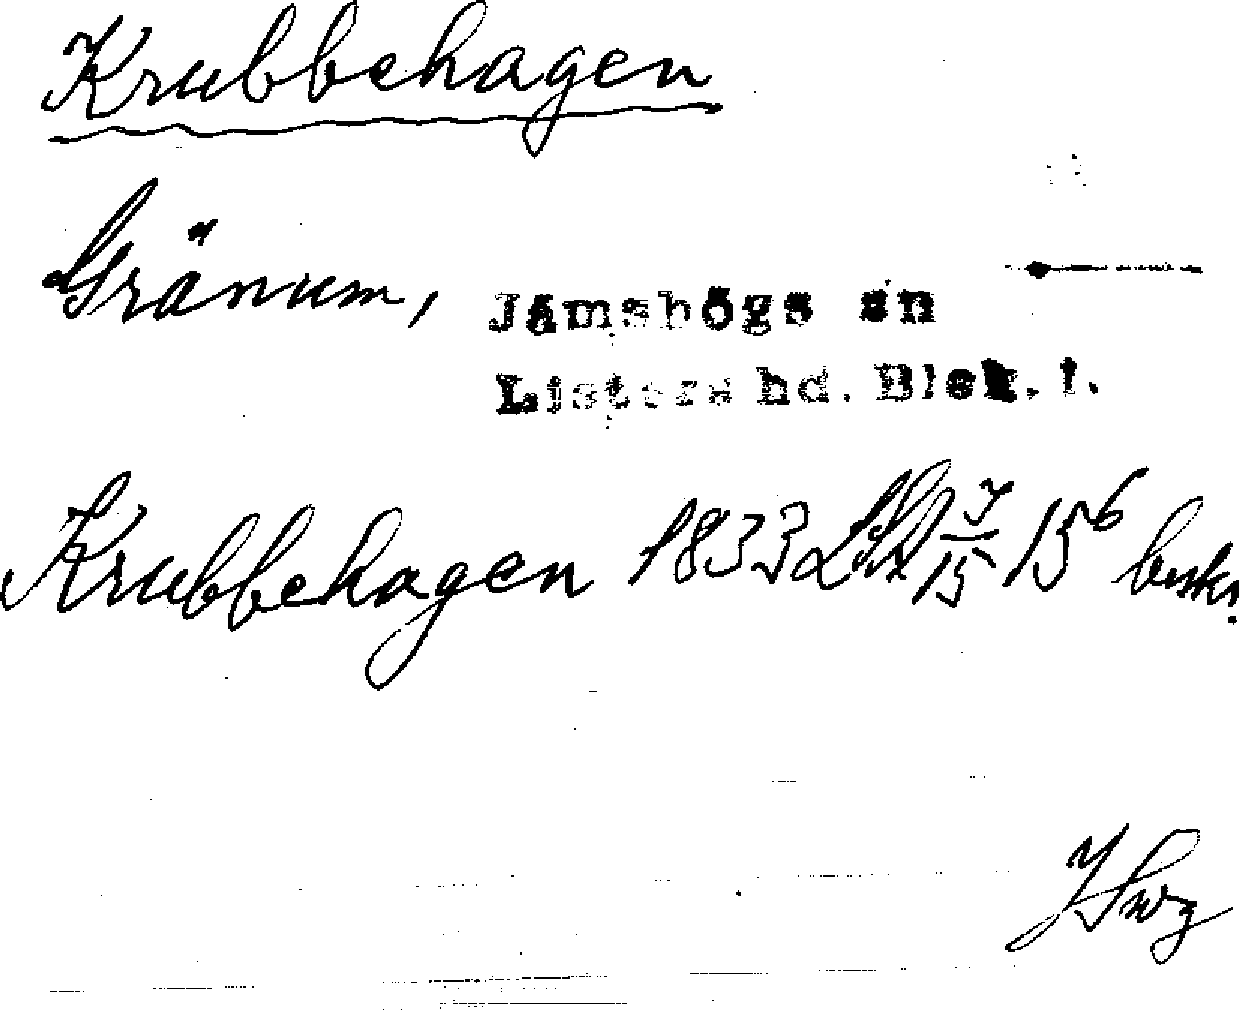 Krubbehagen
Gränum, Jämshögs sn
Listers hd. Blek. l.
Krubbehagen 1833 LSA 7/15 15⁶ beskr.